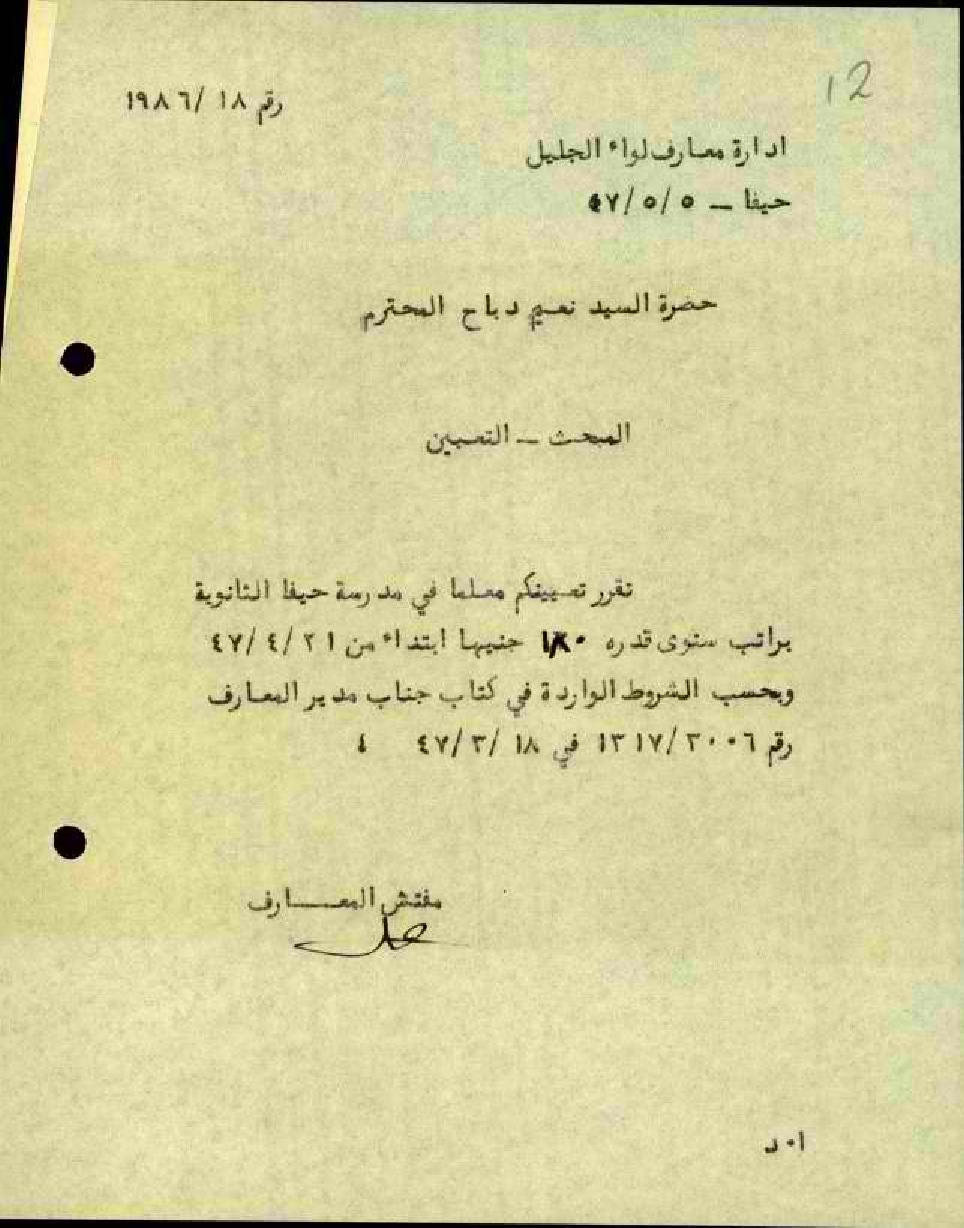 12
رقم ١٨ /١٩٨٦
ادارة معارف لواء الجليل
حيفا – ٥/ ٥/ ٤٧
حضرة السيد نعيم دباح المحترم
المبحث – التعيين
تقرر تعيينكم معلما في مدرسة حيفا الثانوية
براتب سنوى قدره جنيها ابتداء من ٢١ /٤ /٤٧
وبحسب الشروط الواردة في كتاب جناب مدير المعارف
رقم ٣٠٠٦/ ١٣١٧ في ١٨ /٣/ ٤٧ ٤
مفتش المعــــارف
ا٠ د